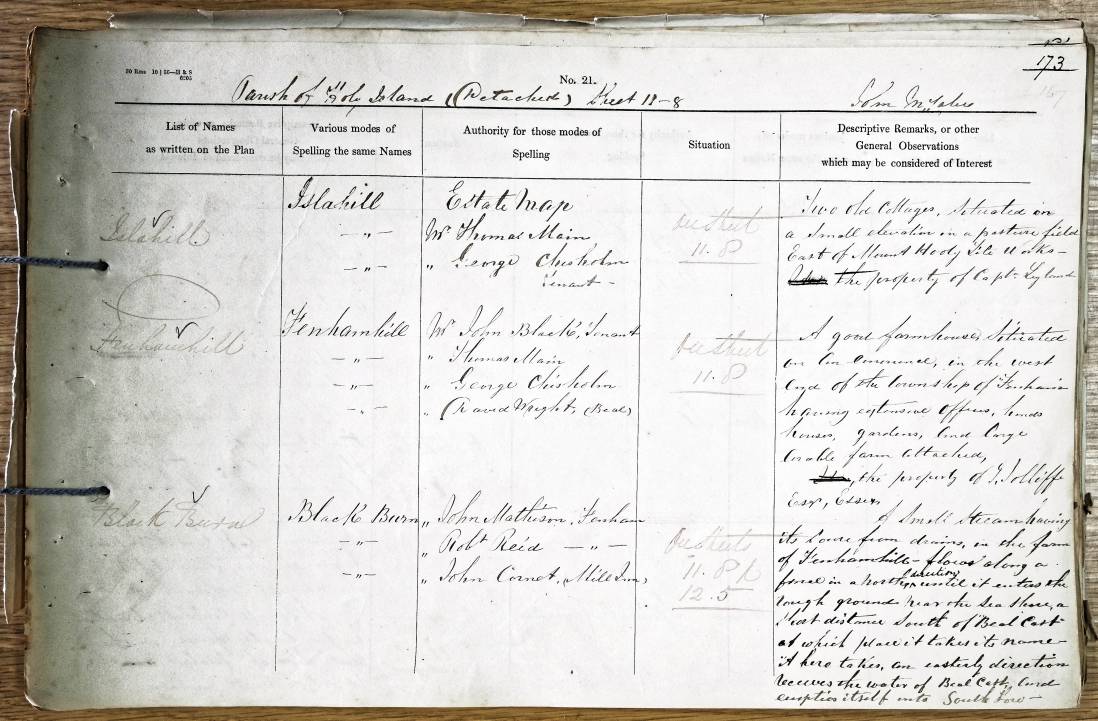 173
20 Rms 10 | 56—H & S
6205
No. 21.
Parish of Holy Island (Detached) Sheet 11-8
John
List of Names
as written on the Plan
Various modes of
Spelling the same Names
Authority for those modes of
Spelling
Situation
Descriptive Remarks, or other
General Observations
which may be considered of Interest
Islahill
Islahill
—"—
—"—
Estate Map
Mr Thomas Main
" George Chisholm
Tenant
on Sheet
11.8
Two old Cottages, situated on
a small elevation in a pasture field
East of Mount Hooly Tile Works—
the property of Capt. Leyland
Fenhamhill
Fenhamhill
—"—
—"—
—"—
Mr John Black, Tenant
" Thomas Main
" George Chisholm
" David Wright, (Beal)
on Sheet
11.8
A good farmhouse, situated
on an eminence, in the west
end of the township of Fenham
having extensive offices, hinds
houses, gardens, and large
arable farm attached,
the property of J. Jolliffe
Esqr, Essex
Black Burn
Black Burn
—"—
—"—
" John Mathison, Fenham
" Robt Reid —"—
" John Cornet, (Mill Inn)
On Sheets
11.8 &
12.5
A small stream having
its source from drains, in the farm
of Fenhamhill—flows along a
fence in a north direction, until it enters the
rough ground near the Sea Shore, a
short distance South of Beal Cast
at which place it takes its name—
it here takes, an easterly direction
receives the water of Beal Cast, and
empties itself into South Low—